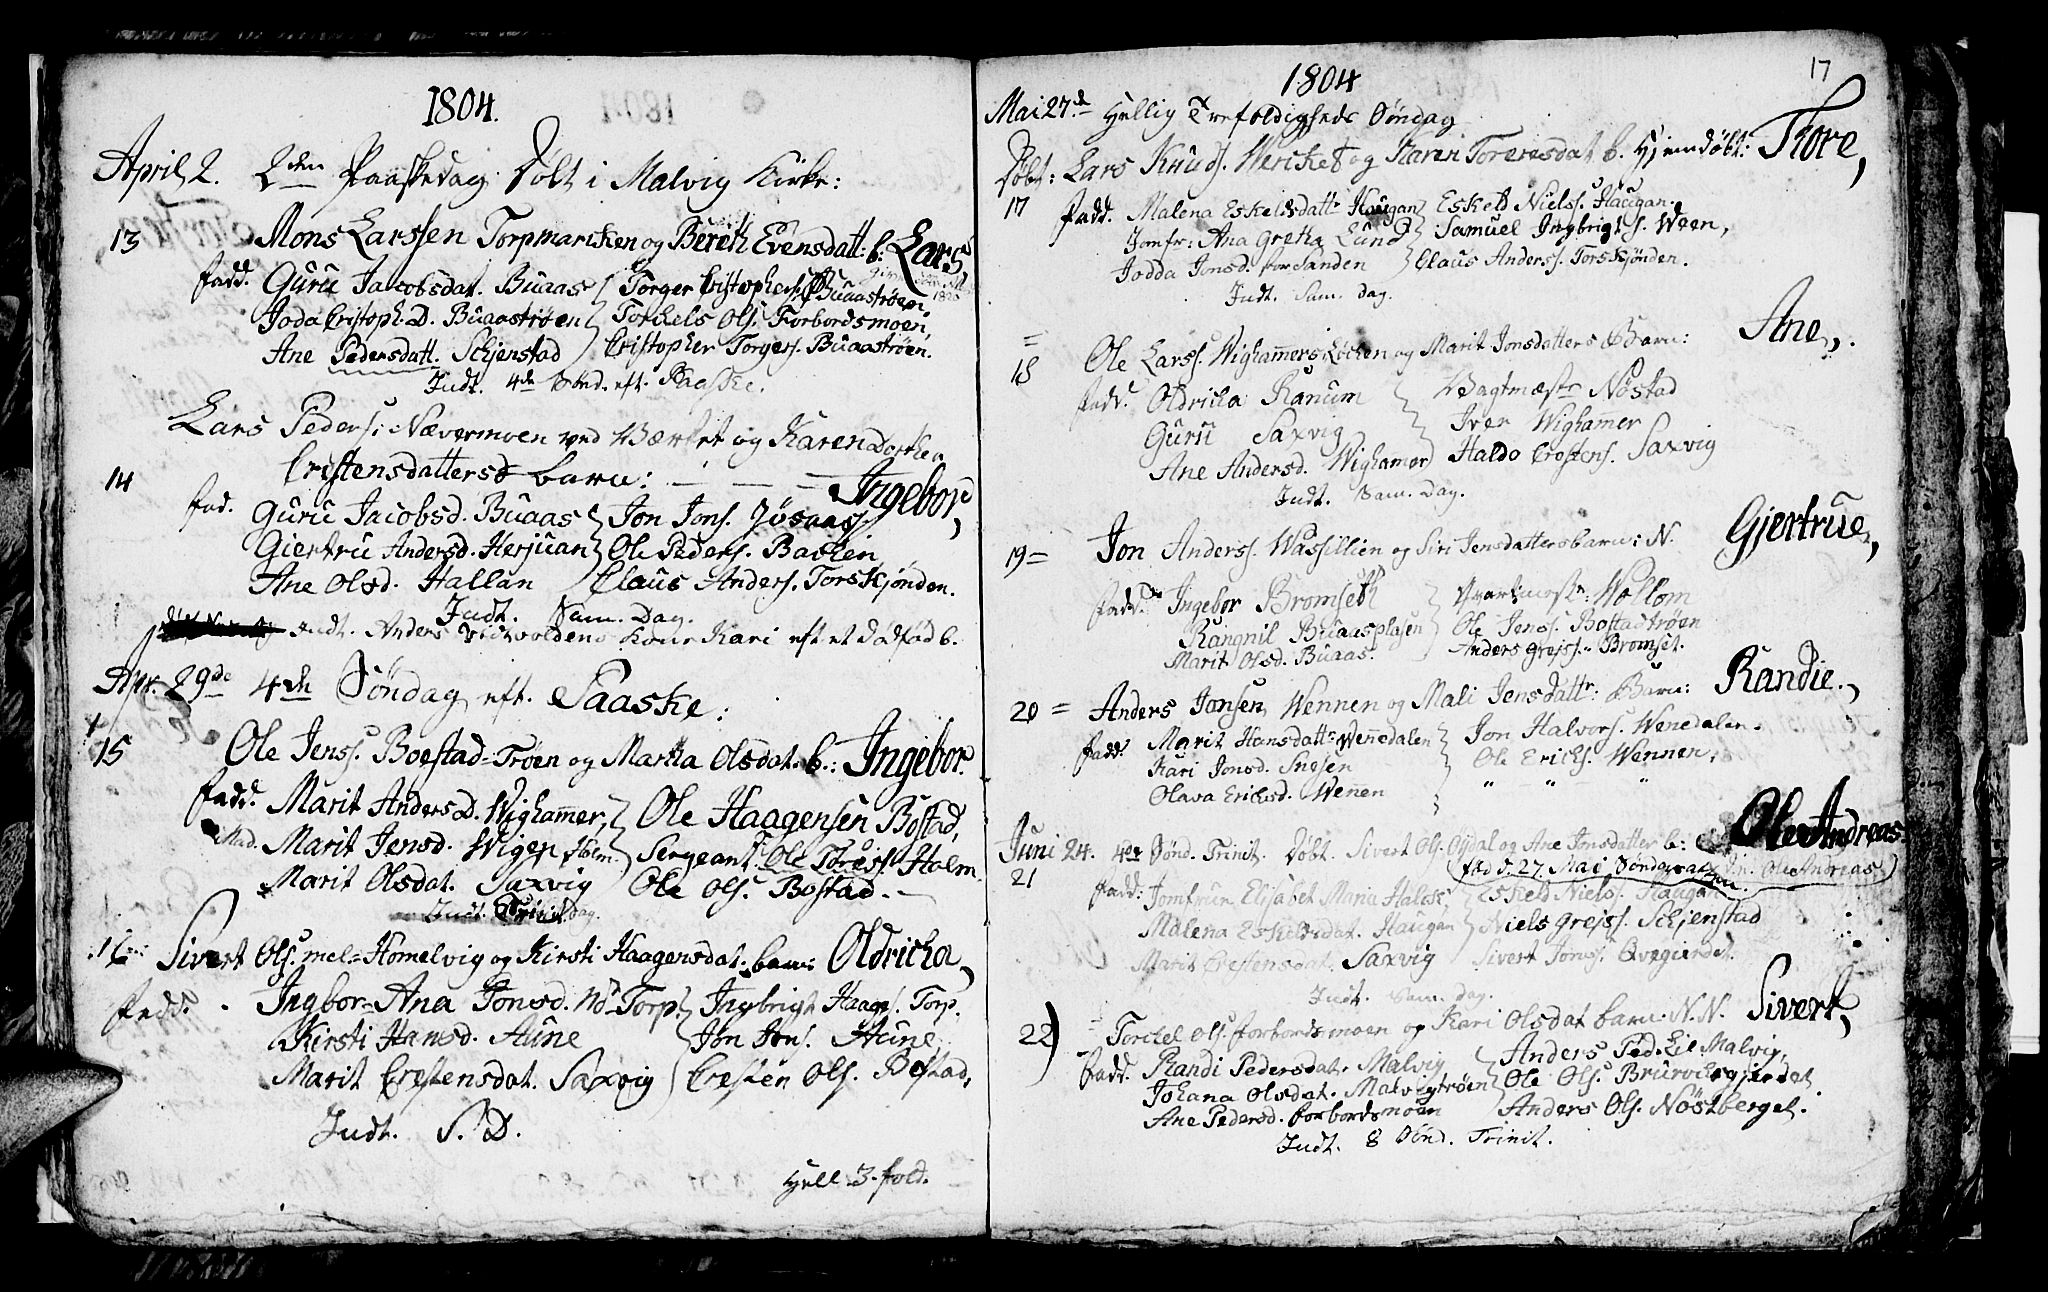 1804.
April 2. 2den Paaskedag. Døbt i Malvig Kirke:
13 Mons Larssen Torpmarcken og Bereth Evensdatt: b. Lars,
fadd. Guru Jacobsdat. Buaas Torger Cristophers. Buaastrøen,
Joda Cristoph. D. Buaastrøen Torkels Ols. Forbordsmoen,
Ane Pedersdatt. Schjenstad Cristopher Torgers. Buaastrøen.
Indt. 4de Sønd. eft. Paaske.
Lars Peders. Nævermoen ved Værket og Karen Dorthea
14 Cristensdattersd barn: Ingebor,
fad. Guru Jacobsd. Buaas Jon Jons. Jøsaas
Giertru Andersd. Herjuan Ole Peders. Backen
Ane Olsd. Hallan Claus Anders. Torskjønden.
Indt. Sam. Dag.
Indt. Anders Kone Kari eft et dødfød b.
Apr. 29de 4de Søndag eft. Paaske:
15 Ole Jenss. Boestad-Trøen og Martha Olsdat. b.: Ingebor.
fadd. Marit Andersd. Wighammer, Ole Haagensen Bostad,
Mad. Marit Jensd. Wigen Holm. Sergeant Ole Toress. Holm.
Marit Olsdat. Saxvig Ole Ols. Bostad.
Indt. Trinit. Dag.
16 Sivert Ols. mel-Homelvig og Kirsti Haagensdat. barn: Oldricka,
fadd. Ingbor-Ana Jonsd. No-Torp. Ingbrigt Haags. Torp.
Kirsti Hansd. Aune Jon Jons. Aune
Marit Crestensdat. Saxvig Cresten Ols. Bostad,
Indt. S. D.
Hell 3-fold.
1804 17
Mai 27de Hellig Trefoldigheds Søndag
Døbt: Lars Knuds. Wercket og Karen Toreresdat b. Hjemdøbt: Thore,
17 fadd. Malena Eskeldsdattr Haugan Eskeld Nielss. Haugan.
Jomfr: Ana Gretha Lund Samuel Ingbrigts. Ween,
Jodda Jonsd. forsanden Claus Anderss. Torskjønden.
Indt. Sam. Dag.
=
18 Ole Larss. WighammersLøcken og Marit Jonsdatters Barn: Ane,
fadd. Oldricka Ranum Vagtmæstr Nøstad
Guru Saxvig Iver Wighammer
Ane Andersd. Wighamer Haldo Crestens. Saxvig
Indt. Sam. Dag.
19 = Jon Anderss. Wassillien og Siri Jensdatters barn: N. Gjertrue,
fadd. Ingebor Bromseth Qvartmestr: Wollom
Rangnil Buaasplasen Ole Jenss. Bostadtrøen
Marit Olsd. Buaas. Anders Grejss. Bromset.
20 = Anders Jonsen Wennen og Mali Jensdattr: Barn: Randie.
fadd. Marit Hansdattr Wenedalen Jon Halvors. Wenedalen.
Kari Jonsd. Snesen Ole Ericks. Wennen,
Olava Ericksd. Wenen " " "
Juni 24. 4de Sønd. Trinit. Døbt. Sivert Ols. Oydal og Ane Jonsdatter b: Ole Andreas
21 fød d. 27. Mai Ole Andreas
fadd: Jomfrue Elisabet Maria Eskeld Niels. Haugan
Malena Eskeldsdat. Haugan Niels Grejss. Schjenstad
Marit Crestensdat. Saxvig Sivert Jonss. Qvegierdet.
Indt. Sam. Dag.
22) = Torckel Ols. forbordsmoen og Kari Olsdat barn: N.N. Sivert,
fadd. Randi Pedersdat. Malvig Anders Malvig,
Johana Olsdat. Malvigtrøen Ole Ols.
Ane Pedersd. forbordsmoen Anders Ols. Nøstberget.
Indt. 8 Sønd. Trinit.